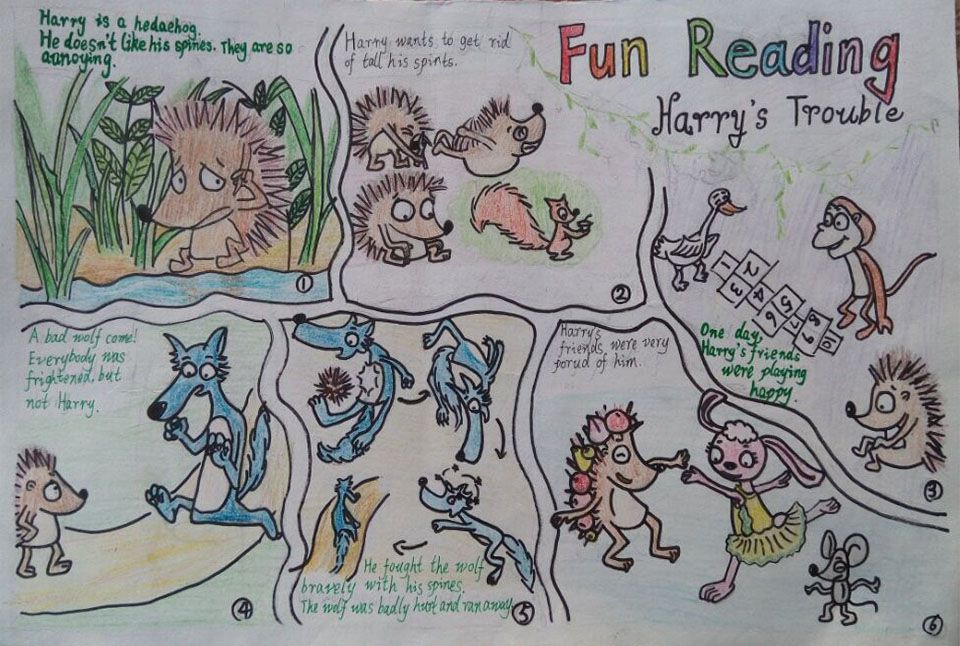 Fun Reading
Harry's Trouble
Harry is a hedaehog.
He doesn't like his spines. They are so
aunoying.
①
Harry wants to get rid
of tall his spints.
②
1
2
3
4
5
6
7
8
9
10
One day,
Harry's friends
were playing
happy.
③
A bad wolf come!
Everybody was
frightened, but
not Harry.
④
He fought the wolf
bravely with his spines.
The wolf was badly hurt and ran away.
⑤
Harry's
friends were very
porud of him.
⑥